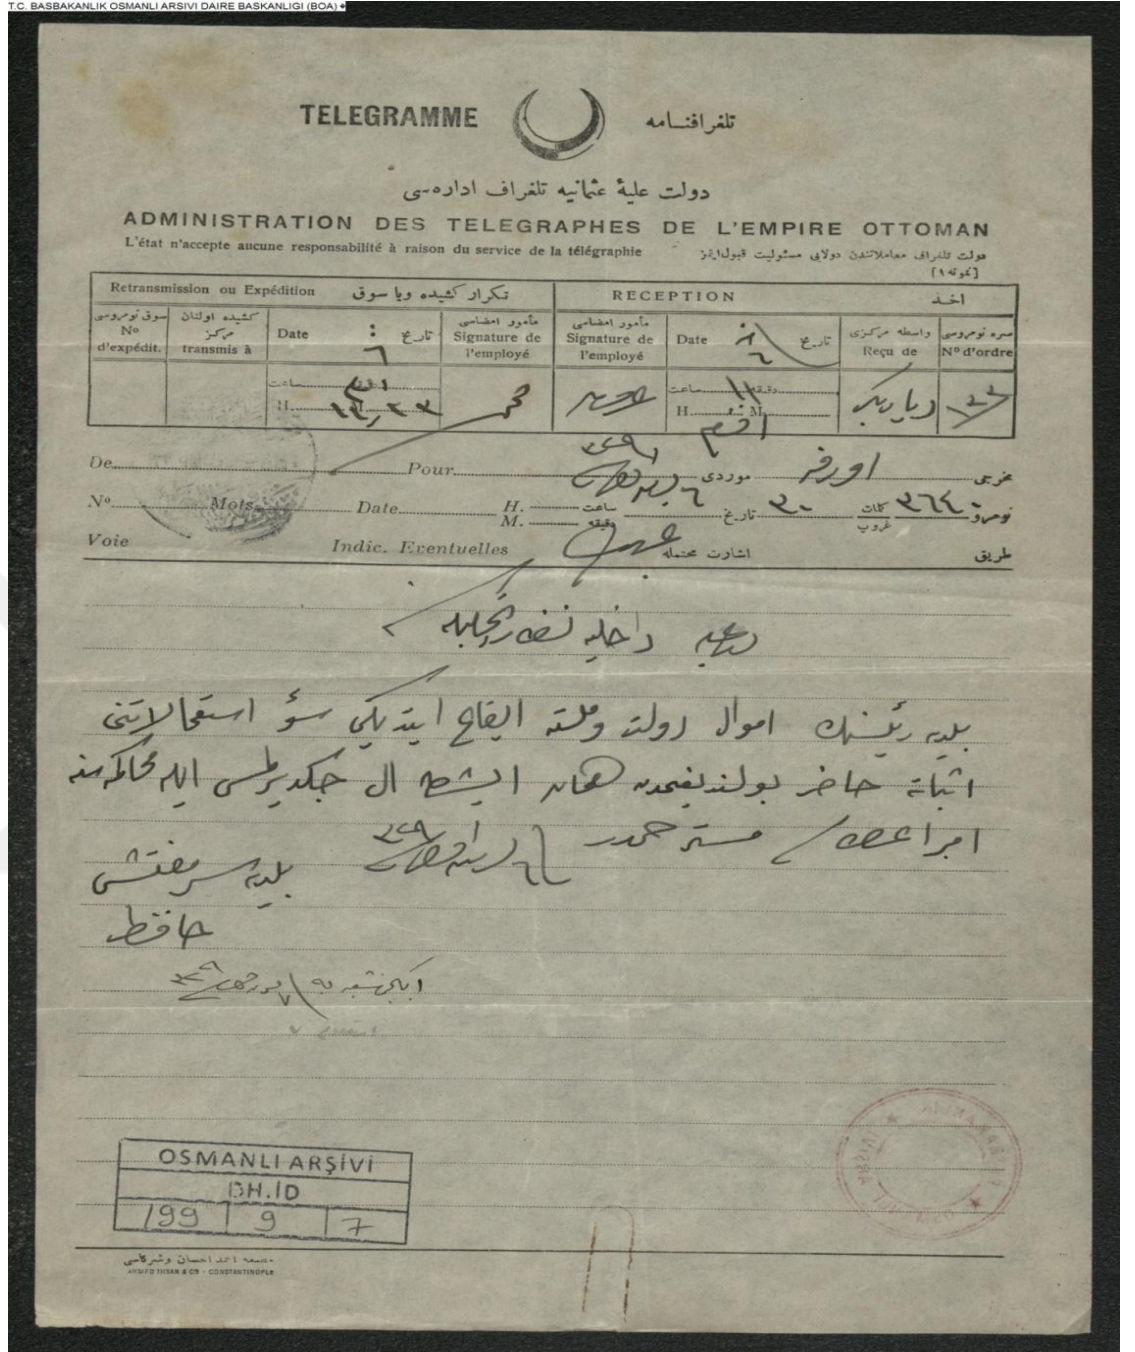 T.C. BASBAKANLIK OSMANLI ARSIVI DAIRE BASKANLIGI (BOA)
TELEGRAMME تلغرافنامه
دولت علیهٔ عثمانیه تلغراف اداره‌سی
ADMINISTRATION DES TELEGRAPHES DE L'EMPIRE OTTOMAN
L'état n'accepte aucune responsabilité à raison du service de la télégraphie
دولت تلغراف معاملاتندن دولایی مسئولیت قبول ایتمز
Retransmission ou Expédition تکرار کشیده ویا سوق
RECEPTION اخذ
سوق نومروسی N° d'expédit.
کشیده اولنان مرکز transmis à
Date تاریخ ٦
مأمور امضاسی Signature de l'employé
مأمور امضاسی Signature de l'employé
Date تاریخ ٦
واسطه مرکزی Reçu de
صره نومروسی N° d'ordre
ساعت
H. M.
دقیقه ١١ ساعت
H. M.
دیاربکر
De Pour موردی اورفه مخرجی
N° Mots Date H. M. ساعت دقیقه تاریخ ٣٠ کلمات غروب ٣٦٤ نومرو
Voie Indic. Eventuelles اشارت محتمله طریق
داخلیه نظارت جلیله
بلدیه رئیسنك اموال دولت وملته ایقاع ایتدیکی سوٴ استعمالاتنی
اثباته حاضر بولندیغمدن همان ایشدن ال چکدیرلمسی ایله محاکمه‌سنه
امر اعطا مسترحمدر ٦
بلدیه سر مفتشی
حافظ
OSMANLI ARŞİVİ
DH.İD
199 9 7
مطبعه احمد احسان وشرکاسی
AHMED IHSAN & CO - CONSTANTINOPLE